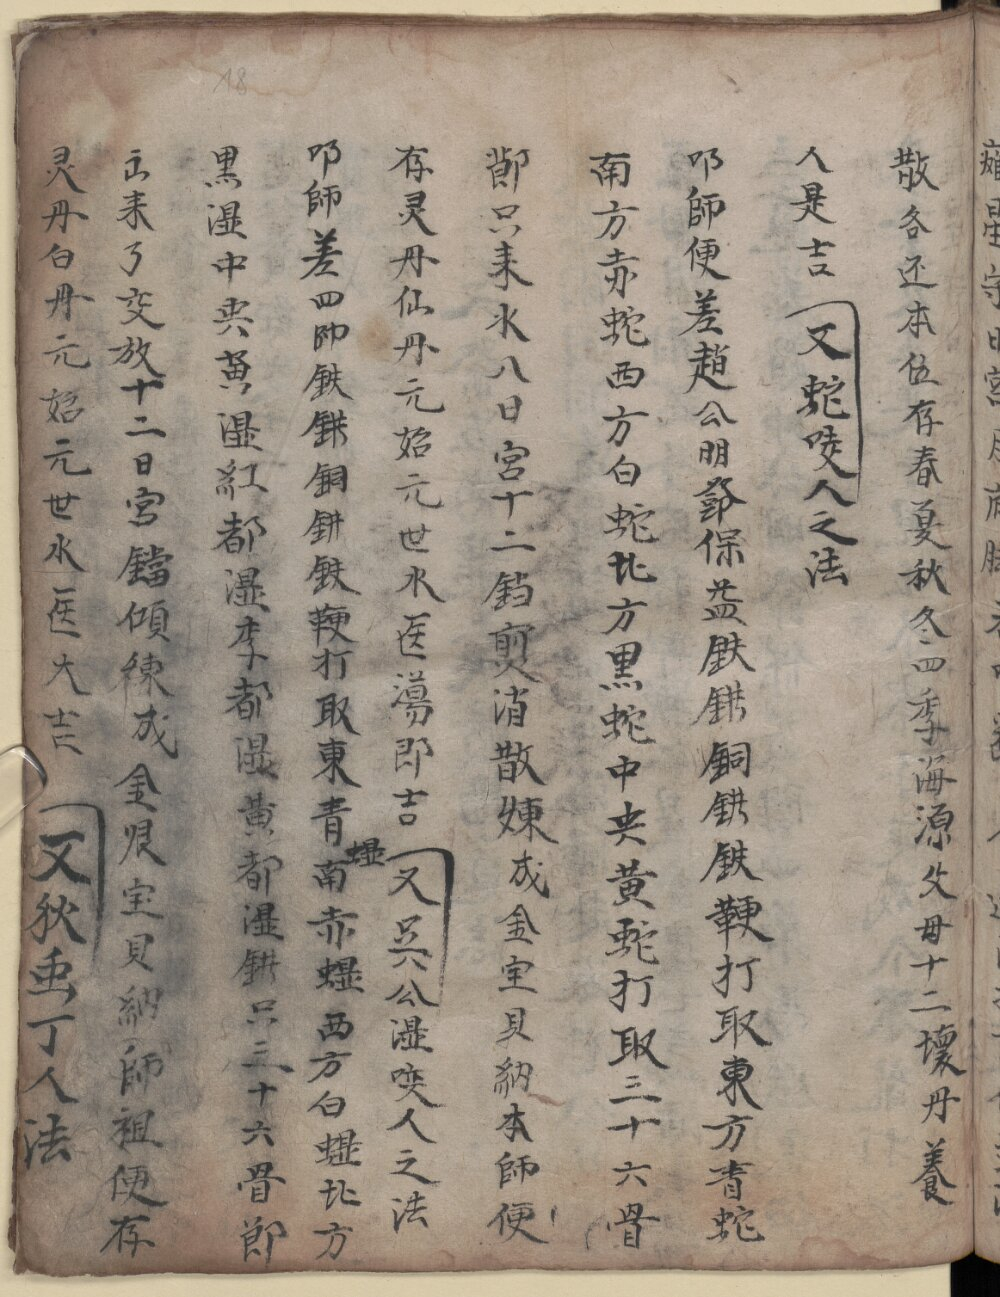 散各还本伍存春夏秋冬四季海源父母十二壞丹養
人是吉 又蛇咬人之法
叩師便差趙公明鄧保益鉄鉷銅鉷鉄鞭打取東方青蛇
南方赤蛇西方白蛇北方黑蛇中央黄蛇打取三十六骨
節只来水八日宮十二鐺煎消散煉成金宝貝納本師便
存灵丹仙丹元始元世水医湯即吉 又吴公湿咬人之法
叩師差四帥鉄鉷銅鉷鉄鞭打取東青蝹南赤蝹西方白蝹北方
黑湿中央黄湿紅都湿李都湿黄都湿鉷只三十六骨節
来了交放十二日宮鐺傾煉成金艮宝貝納師祖便存
灵丹白丹元始元世水医大吉 又狄虫丁人法